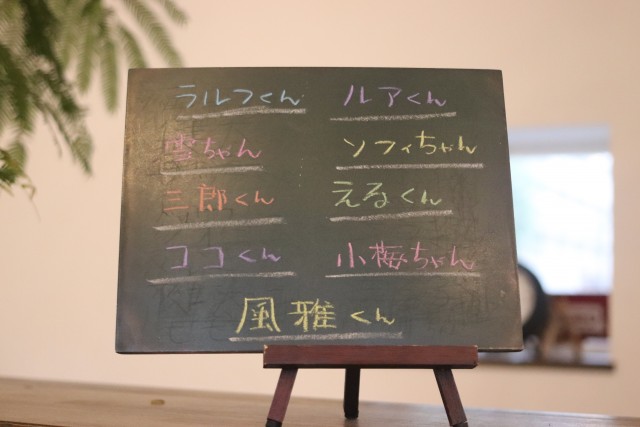 ラルフくん ルアくん
雪ちゃん ソフィちゃん
三郎くん えるくん
ココくん 小梅ちゃん
風雅くん